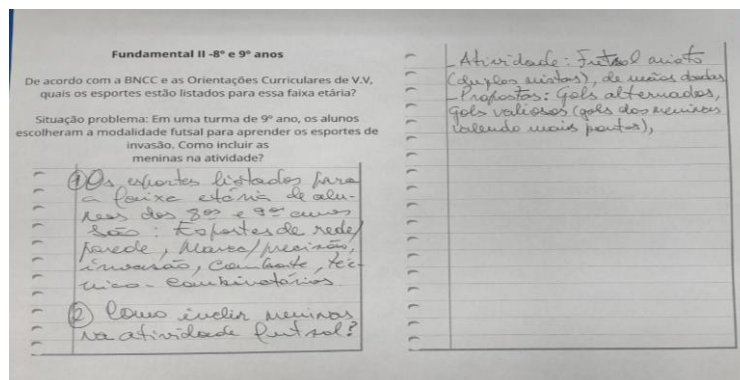 Fundamental II -8º e 9º anos
De acordo com a BNCC e as Orientações Curriculares de V.V,
quais os esportes estão listados para essa faixa etária?
Situação problema: Em uma turma de 9º ano, os alunos
escolheram a modalidade futsal para aprender os esportes de
invasão. Como incluir as
meninas na atividade?
① Os esportes listados para
a faixa etária de alu-
nos dos 8ºs e 9ºs anos
são: Esportes de rede/
parede, Marca/precisão,
invasão, Combate, téc-
nico-combinatórios.
② Como incluir meninas
na atividade futsal?
- Atividade: Futsal misto
(duplas mistas), de mãos dadas
- Propostas: Gols alternados,
Gols valiosos (gols das meninas
valendo mais pontos),